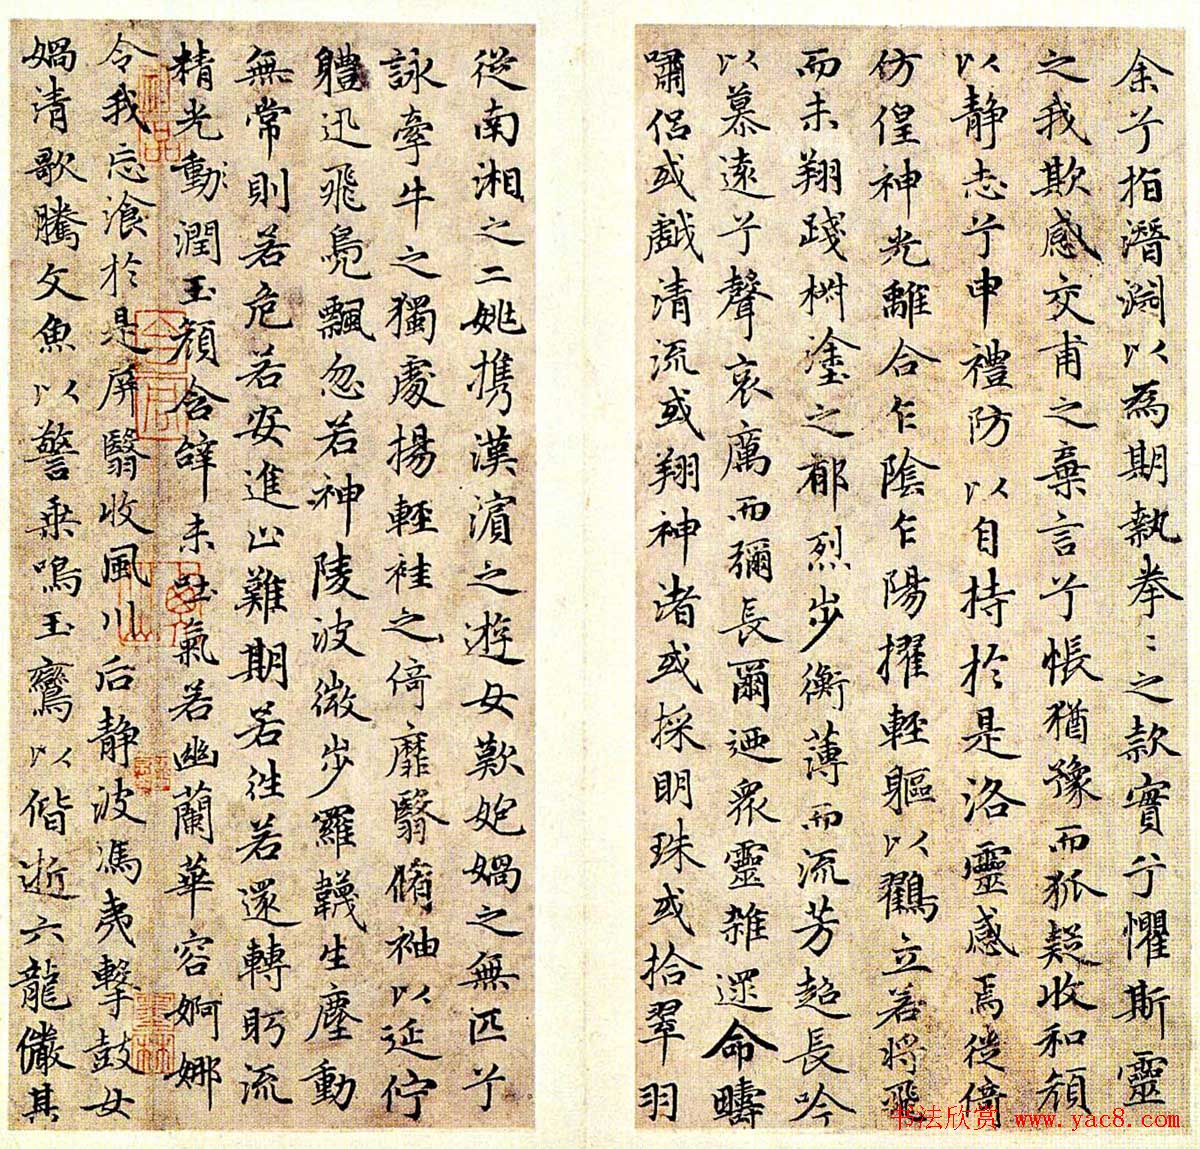 余兮指潛淵以為期執拳〻之款實兮懼斯靈
之我欺感交甫之棄言兮悵猶豫而狐疑收和顏
以静志兮申禮防以自持於是洛靈感焉徙倚
仿偟神光離合乍陰乍陽擢輕軀以鶴立若將飛
而未翔踐椒塗之郁烈步衡薄而流芳超長吟
以慕遠兮聲哀厲而彌長爾迺眾靈雜遝命疇
嘯侶或戲清流或翔神渚或採明珠或拾翠羽
從南湘之二姚攜漢濱之遊女歎匏媧之無匹兮
詠牽牛之獨處揚輕袿之倚靡翳脩袖以延佇
體迅飛鳧飄忽若神陵波微步羅韈生塵動
無常則若危若安進止難期若往若還轉眄流
精光動潤玉顏含辭未吐氣若幽蘭華容婀娜
令我忘飡於是屏翳收風川后静波馮夷擊鼓女
媧清歌騰文魚以警乘鳴玉鸞以偕逝六龍儼其
书法欣赏 www.yac8.com